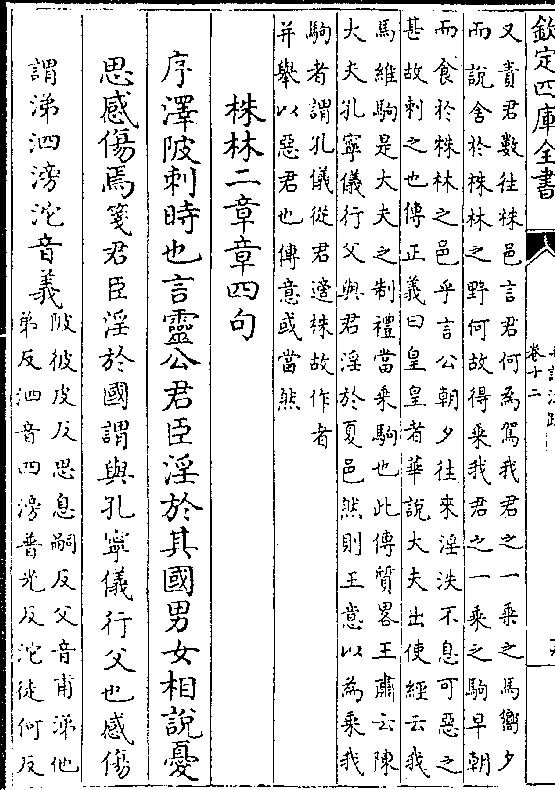 欽定四庫全書
卷十二
又責君數往株邑言君何為駕我君之一乘之馬嚮夕
而說舍於株林之野何故得乘我君之一乘之駒早朝
而食於株林之邑乎言公朝夕往來淫泆不息可惡之
甚故刺之也傳正義曰皇皇者華說大夫出使經云我
馬維駒是大夫之制禮當乘駒也此傳質畧王肅云陳
大夫孔寧儀行父與君淫於夏邑然則王意以為乘我
駒者謂孔儀從君適株故作者
并舉以惡君也傳意或當然
株林二章章四句
序澤陂刺時也言靈公君臣淫於其國男女相說憂
思感傷焉箋君臣淫於國謂與孔寧儀行父也感傷
謂涕泗滂沱音義
陂彼皮反思息嗣反父音甫涕他
弟反泗音四滂普光反沱徒何反